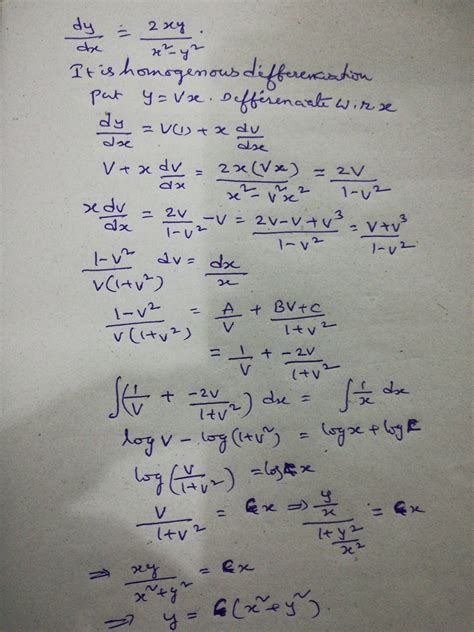 dy/dx = 2xy/(x²-y²).
It is homogenous differenciation
put y=Vx. Differenciate w.r.x
dy/dx = V(1) + x dv/dx
V + x dv/dx = 2x(Vx)/(x²-v²x²) = 2V/(1-v²)
x dv/dx = 2V/(1-v²) - V = (2V-V+V³)/(1-v²) = (V+V³)/(1-v²)
(1-v²)/(V(1+v²)) dv = dx/x
(1-v²)/(V(1+v²)) = A/V + (BV+C)/(1+v²)
= 1/V + (-2V)/(1+v²)
∫(1/V + (-2V)/(1+v²)) dx = ∫ 1/x dx
log V - log(1+v²) = log x + log C
log(V/(1+v²)) = log C x
V/(1+v²) = Cx ⇒ (y/x)/(1+y²/x²) = Cx
⇒ xy/(x²+y²) = Cx
⇒ y = C(x²+y²).